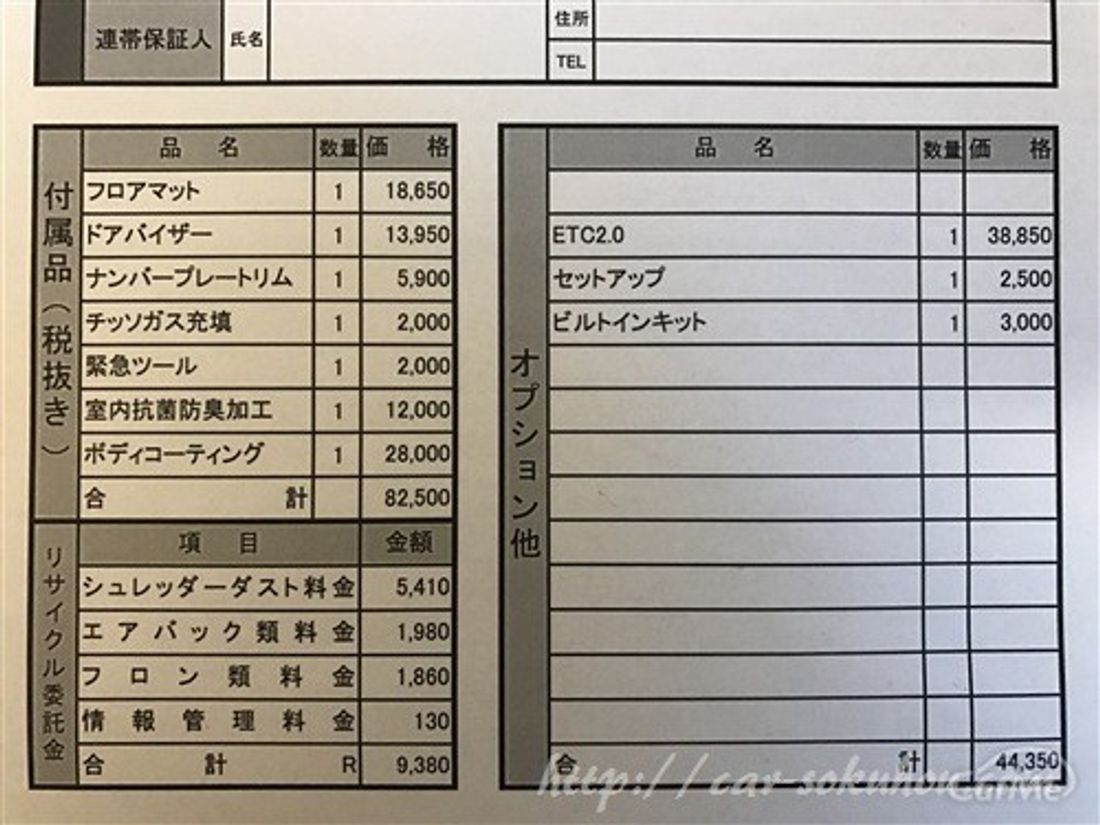 連帯保証人 氏名 住所
TEL
付属品(税抜き)
品名 数量 価格
フロアマット 1 18,650
ドアバイザー 1 13,950
ナンバープレートリム 1 5,900
チッソガス充填 1 2,000
緊急ツール 1 2,000
室内抗菌防臭加工 1 12,000
ボディコーティング 1 28,000
合計 82,500
リサイクル委託金
項目 金額
シュレッダーダスト料金 5,410
エアバック類料金 1,980
フロン類料金 1,860
情報管理料金 130
合計 R 9,380
オプション他
品名 数量 価格
ETC2.0 1 38,850
セットアップ 1 2,500
ビルトインキット 1 3,000
合計 44,350
CurMe